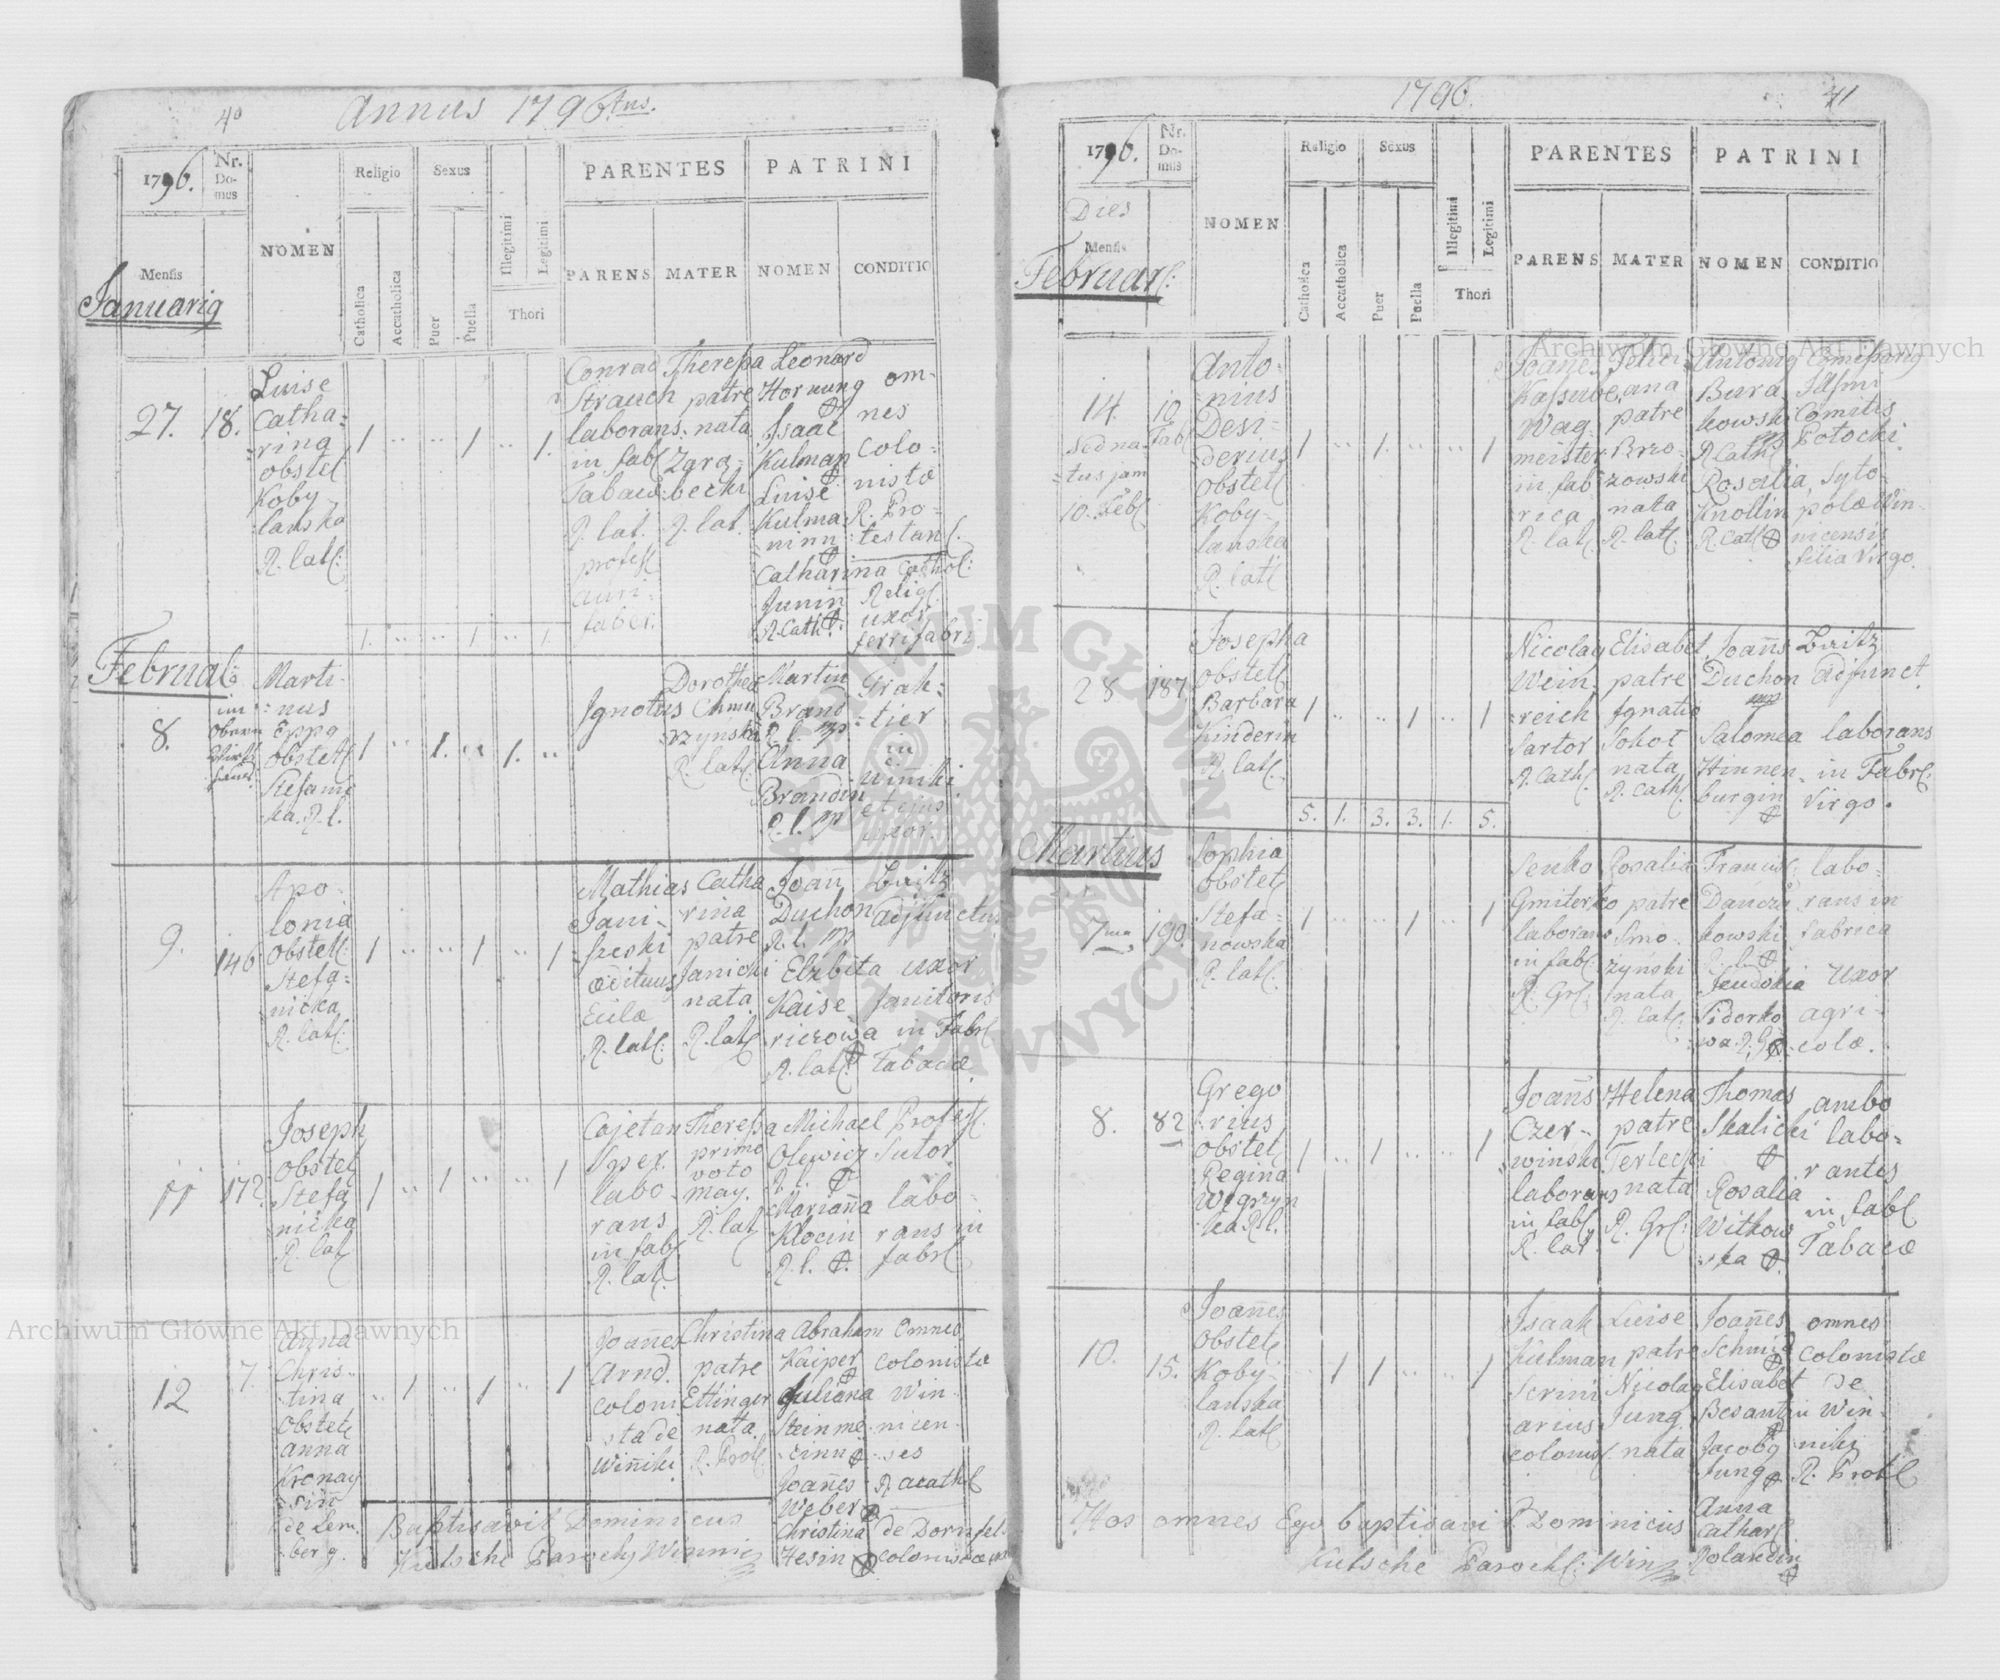 40
Annus 1796tus.
1796.
Nr. Do- mus
NOMEN
Religio
Sexus
PARENTES
PATRINI
Catholica
Accatholica
Puer
Puella
Illegitimi
Legitimi
Thori
PARENS
MATER
NOMEN
CONDITIO
Mensis
Januarig
27.
18.
Luise
Catha=
=rina
obstet
Koby
lanska
R. lat:
1
..
..
1
..
1.
Conrad
Strauch
laborans
in fab
Tabacæ
R. lat.
profess
auri=
faber.
Theressa
patre
nata
Zgra=
becki
R. lat.
Leonard
Hornung
Isaac
Kulman
Luise
Kulma=
=ninn
Catharina
Junin
R. Cath:
om=
nes
Colo=
nistæ
R. Pro=
testan.
Cathol:
Relig.
uxor
ferrifabri
1.
..
..
1
..
1.
Februar:
8.
Marti-
nus
Eppg
Obstet
Stefanic
ka. R. l.
1
..
1.
..
1.
..
Ignotus
Dorothea
R. lat
Martin
Brand
R. l.
Anna
Brandin
R. l.
Grah=
=tier
in
winiki
et ejus
uxor.
9.
146
Apo-
lonia
Obstet:
Stefa=
=nicka
R. lat:
1
..
..
1
..
1
Mathias
Jani=
szeski
ædituus
R. lat:
Catha
rina
patre
Janicki
nata
R. lat
Joan
Duchon
R. l.
Elzbieta
Kaise
riczowa
R. lat:
Britz
Adjunctus
uxor
Janitoris
in Fabr
Tabacæ
11
172
Joseph
Obstet
Stefa
nicka
R. lat
1
..
1
..
..
1
Cajetan
Sper.
labo-
rans
in fab
R. lat.
Theressa
primo
voto
may.
R. lat
Michael
Olewicz
R. l.
Marianna
Klocin
R. l.
Profess.
Sutor
labo=
rans in
fabr
12
7.
Anna
Chris=
tina
Obstet
anna
de Lem
berg.
..
1
..
1
..
1
Joannes
Arnd.
coloni
sta de
Winiki
Christina
patre
Ettinger
nata
R. Prot
Abraham
Kaiper
Juliana
Steinme
cinn
Joannes
Weber
Christina
Hesin
Omnes
Colonistæ
Win-
nicen-
ses
R. acath
de Dornfel
Colonistæ
Baptisavit Dominicus
Kutsche Parochg Winnic
1796.
41
1796.
Nr. Do- mus
NOMEN
Religio
Sexus
PARENTES
PATRINI
Dies
Mensis
Februar:
Catholica
Accatholica
Puer
Puella
Illegitimi
Legitimi
Thori
PARENS
MATER
NOMEN
CONDITIO
14.
sed na=
=tus jam
10. Feb
10
Fab
Anto-
nius
Desi-
derius
Obstet
Koby-
lanska
R. lat
1
..
1.
..
..
1
Joanes
Wag-
meister
in fab
rica
R. lat
ana
patre
Brzo-
zowski
nata
R. lat
Antonig
Bura
kowski
R. Cath
Rosalia
Knollin
R. Cath
Comitis
Potocki.
Syto-
polæ Win-
nicensis
filia Virgo.
28
187
Josepha
Obstet
Barbara
Kinderin
R. lat.
1
..
..
1
..
1
Nicolag
Wein-
=reich
Sartor
R. Cath.
Elisabet
patre
Ignatio
Sokot
nata
R. Cath
Joans
Duchon
Salomea
Hinnen-
burgin
Britz
Adjunct.
laborans
in Fabr.
Virgo.
5.
1.
3.
3.
1.
5.
Martius
7ma
190.
Sophia
Obstet
Stefa=
nowska
R. lat.
1
..
..
1
..
1
Senko
Gmiterko
laborans
in fab.
R. Gr:
Rosalia
patre
Smo-
zynski
nata
R. lat.
Francis:
Danczu
kowski
Feudokia
Sidorko
wa R. G
labo=
rans in
fabrica
Uxor
agri-
colæ.
8.
82
Grego
rius
Obstet
Regina
Wegrzyn
ka R. l.
1
..
1
..
..
1
Joans
Czer-
winski
laborans
in fab
R. lat
Helena
patre
Terlecki
nata
R. Gr:
Thomas
Skalicki
Rosalia
Witkow
ska
ambo
labo=
rantes
in fab
Tabacæ
10.
15.
Joannes
Obstet
Koby
lanska
R. lat
..
1
1
..
..
1
Isaak
Kulman
Scrini
arius
colonus
Luise
patre
Nicolag
Jung
nata
Joannes
Schmid
Elisabet
Besantin
Jacobg
Jung
Anna
Cathar
Rolandin
omnes
Colonistæ
de
Win-
niki
R. Prot
Hos omnes Ego baptisavi P. Dominicus
Kutsche Paroch: Win
Archiwum Główne Akt Dawnych
Archiwum Główne Akt Dawnych
ARCHIWUM GŁÓWNE AKT DAWNYCH